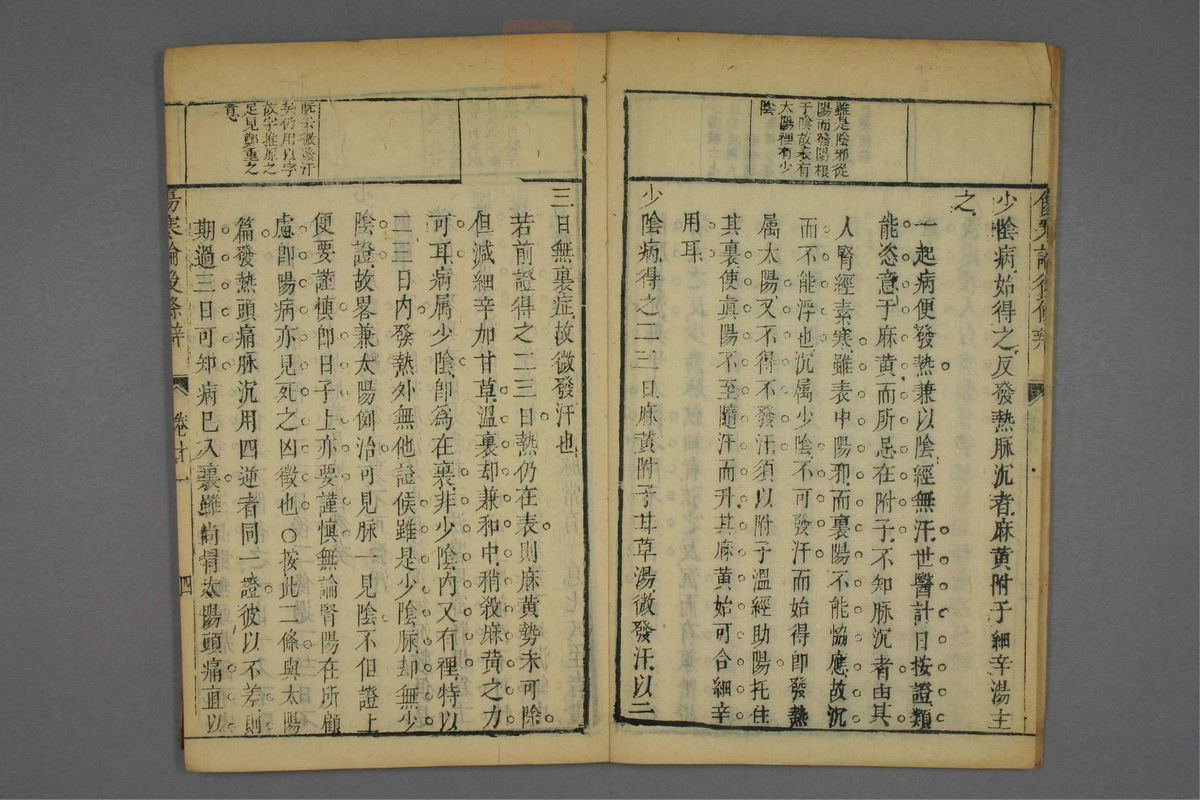 雖是陰邪從
陽而發陽根
于陰故表有
太陽裡有少
陰
少陰病始得之反發熱脉沉者麻黄附子細辛湯主
之
一起病便發熱兼以陰經無汗世醫計日按證類
能恣意于麻黄而所忌在附子不知脉沉者由其
人腎經素寒雖表中陽邪而裏陽不能協應故沉
而不能浮也沉属少陰不可發汗而始得即發熱
属太陽又不得不發汗須以附子溫經助陽托住
其裏使真陽不至隨汗而升其麻黄始可合細辛
用耳
少陰病得之二三日麻黄附子甘草湯微發汗以二
既云微發汗
矣仍用以字
故字推原之
足見鄭重之
意
三日無裏症故微發汗也
若前證得之二三日熱仍在表則麻黄勢未可除
但減細辛加甘草溫裏却兼和中稍殺麻黄之力
可耳病属少陰即為在裏非少陰內又有裡特以
二三日內發熱外無他證候雖是少陰脉却無少
陰證故畧兼太陽例治可見脉一見陰不但證上
便要謹慎即日子上亦要謹慎無論腎陽在所顧
慮即陽病亦見死之凶徵也○按此二條與太陽
篇發熱頭痛脉沉用四逆者同一證彼以不差則
期過三日可知病已入裏雖尚有太陽頭痛直以
傷寒論後條辨
卷十一
四